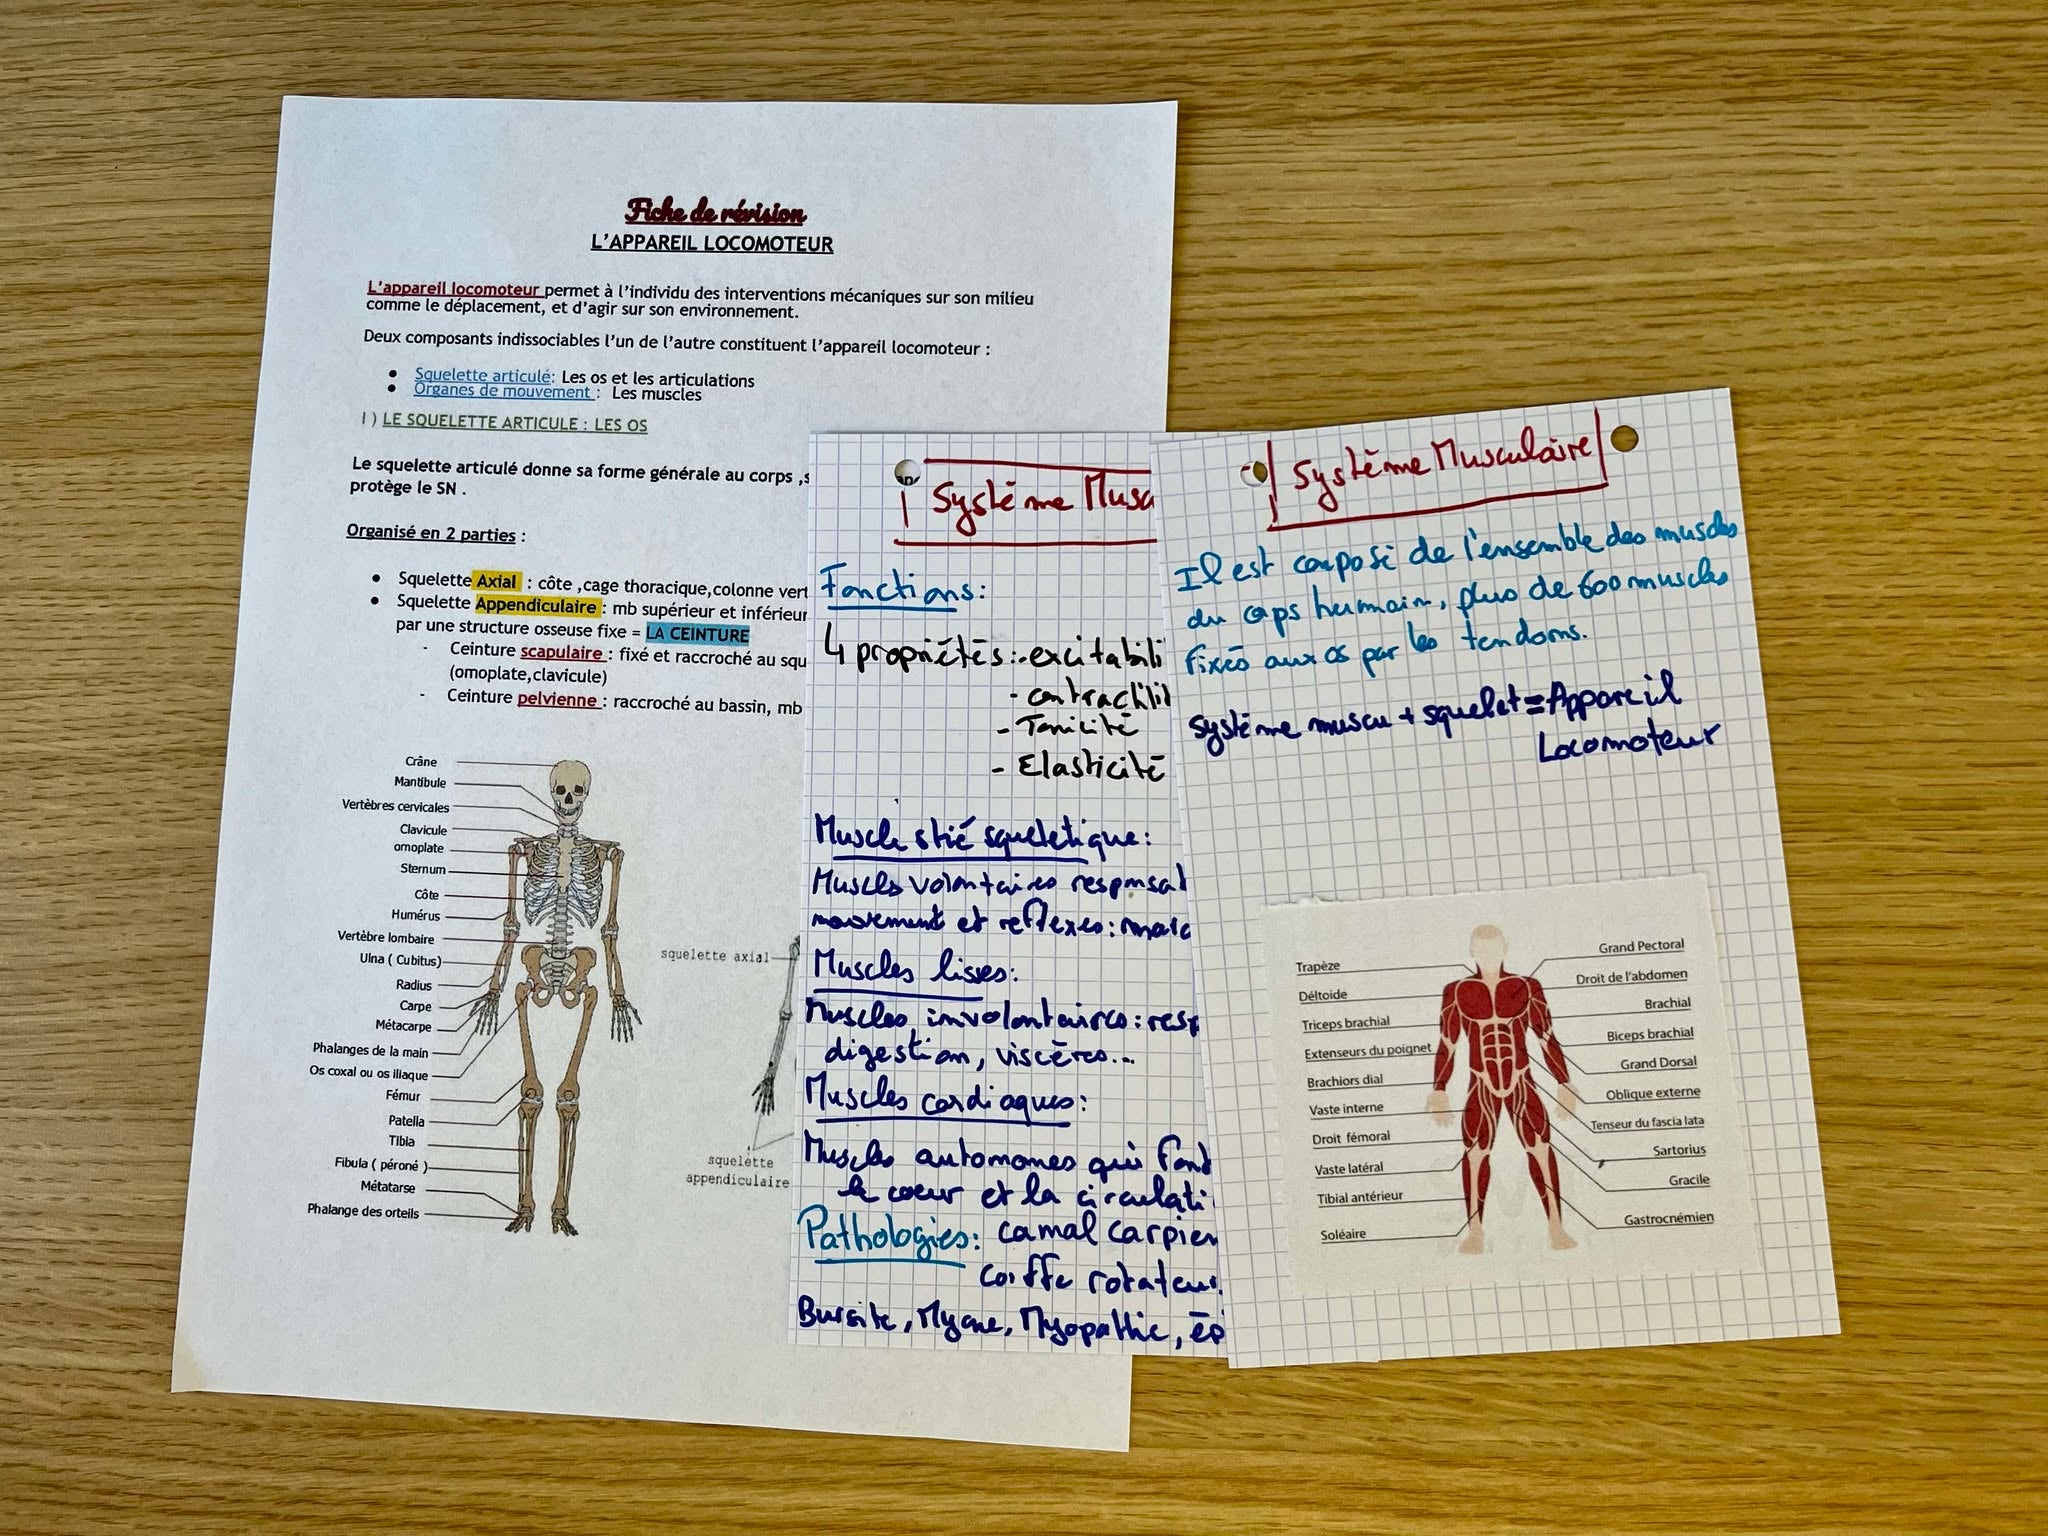 Fiche de révision
L'APPAREIL LOCOMOTEUR
L'appareil locomoteur permet à l'individu des interventions mécaniques sur son milieu
comme le déplacement, et d'agir sur son environnement.
Deux composants indissociables l'un de l'autre constituent l'appareil locomoteur :
● Squelette articulé: Les os et les articulations
● Organes de mouvement : Les muscles
I ) LE SQUELETTE ARTICULE : LES OS
Le squelette articulé donne sa forme générale au corps ,s
protège le SN .
Organisé en 2 parties :
● Squelette Axial : côte ,cage thoracique,colonne vert
● Squelette Appendiculaire : mb supérieur et inférieur
par une structure osseuse fixe = LA CEINTURE
- Ceinture scapulaire : fixé et raccroché au squ
(omoplate,clavicule)
- Ceinture pelvienne : raccroché au bassin, mb
Crâne
Mantibule
Vertèbres cervicales
Clavicule
omoplate
Sternum
Côte
Humérus
Vertèbre lombaire
Ulna ( Cubitus)
Radius
Carpe
Métacarpe
Phalanges de la main
Os coxal ou os iliaque
Fémur
Patella
Tibla
Fibula ( péroné )
Métatarse
Phalange des orteils
squelette axial
squelette
appendiculaire
Système Musc
Fonctions:
4 propriétés: - excitabili
- contractilit
- Tonicité
- Elasticité
Muscle strié squeletique:
Muscles volontaires responsabl
mouvement et reflexes: marc
Muscles lisses:
Muscles involontaires: resp
digestion, viscères...
Muscles cardiaques:
Muscles autonomes qui font
le coeur et la circulati
Pathologies: canal carpien
coiffe rotateur
Bursite, Myopathie, ép
Système Musculaire
Il est composé de l'ensemble des muscles
du corps humain, plus de 600 muscles
fixés aux os par les tendons.
système muscu + squelet = Appareil
Locomoteur
Trapèze
Déltoide
Triceps brachial
Extenseurs du poignet
Brachiors dial
Vaste interne
Droit fémoral
Vaste latéral
Tibial antérieur
Soléaire
Grand Pectoral
Droit de l'abdomen
Brachial
Biceps brachial
Grand Dorsal
Oblique externe
Tenseur du fascia lata
Sartorius
Gracile
Gastrocnémien